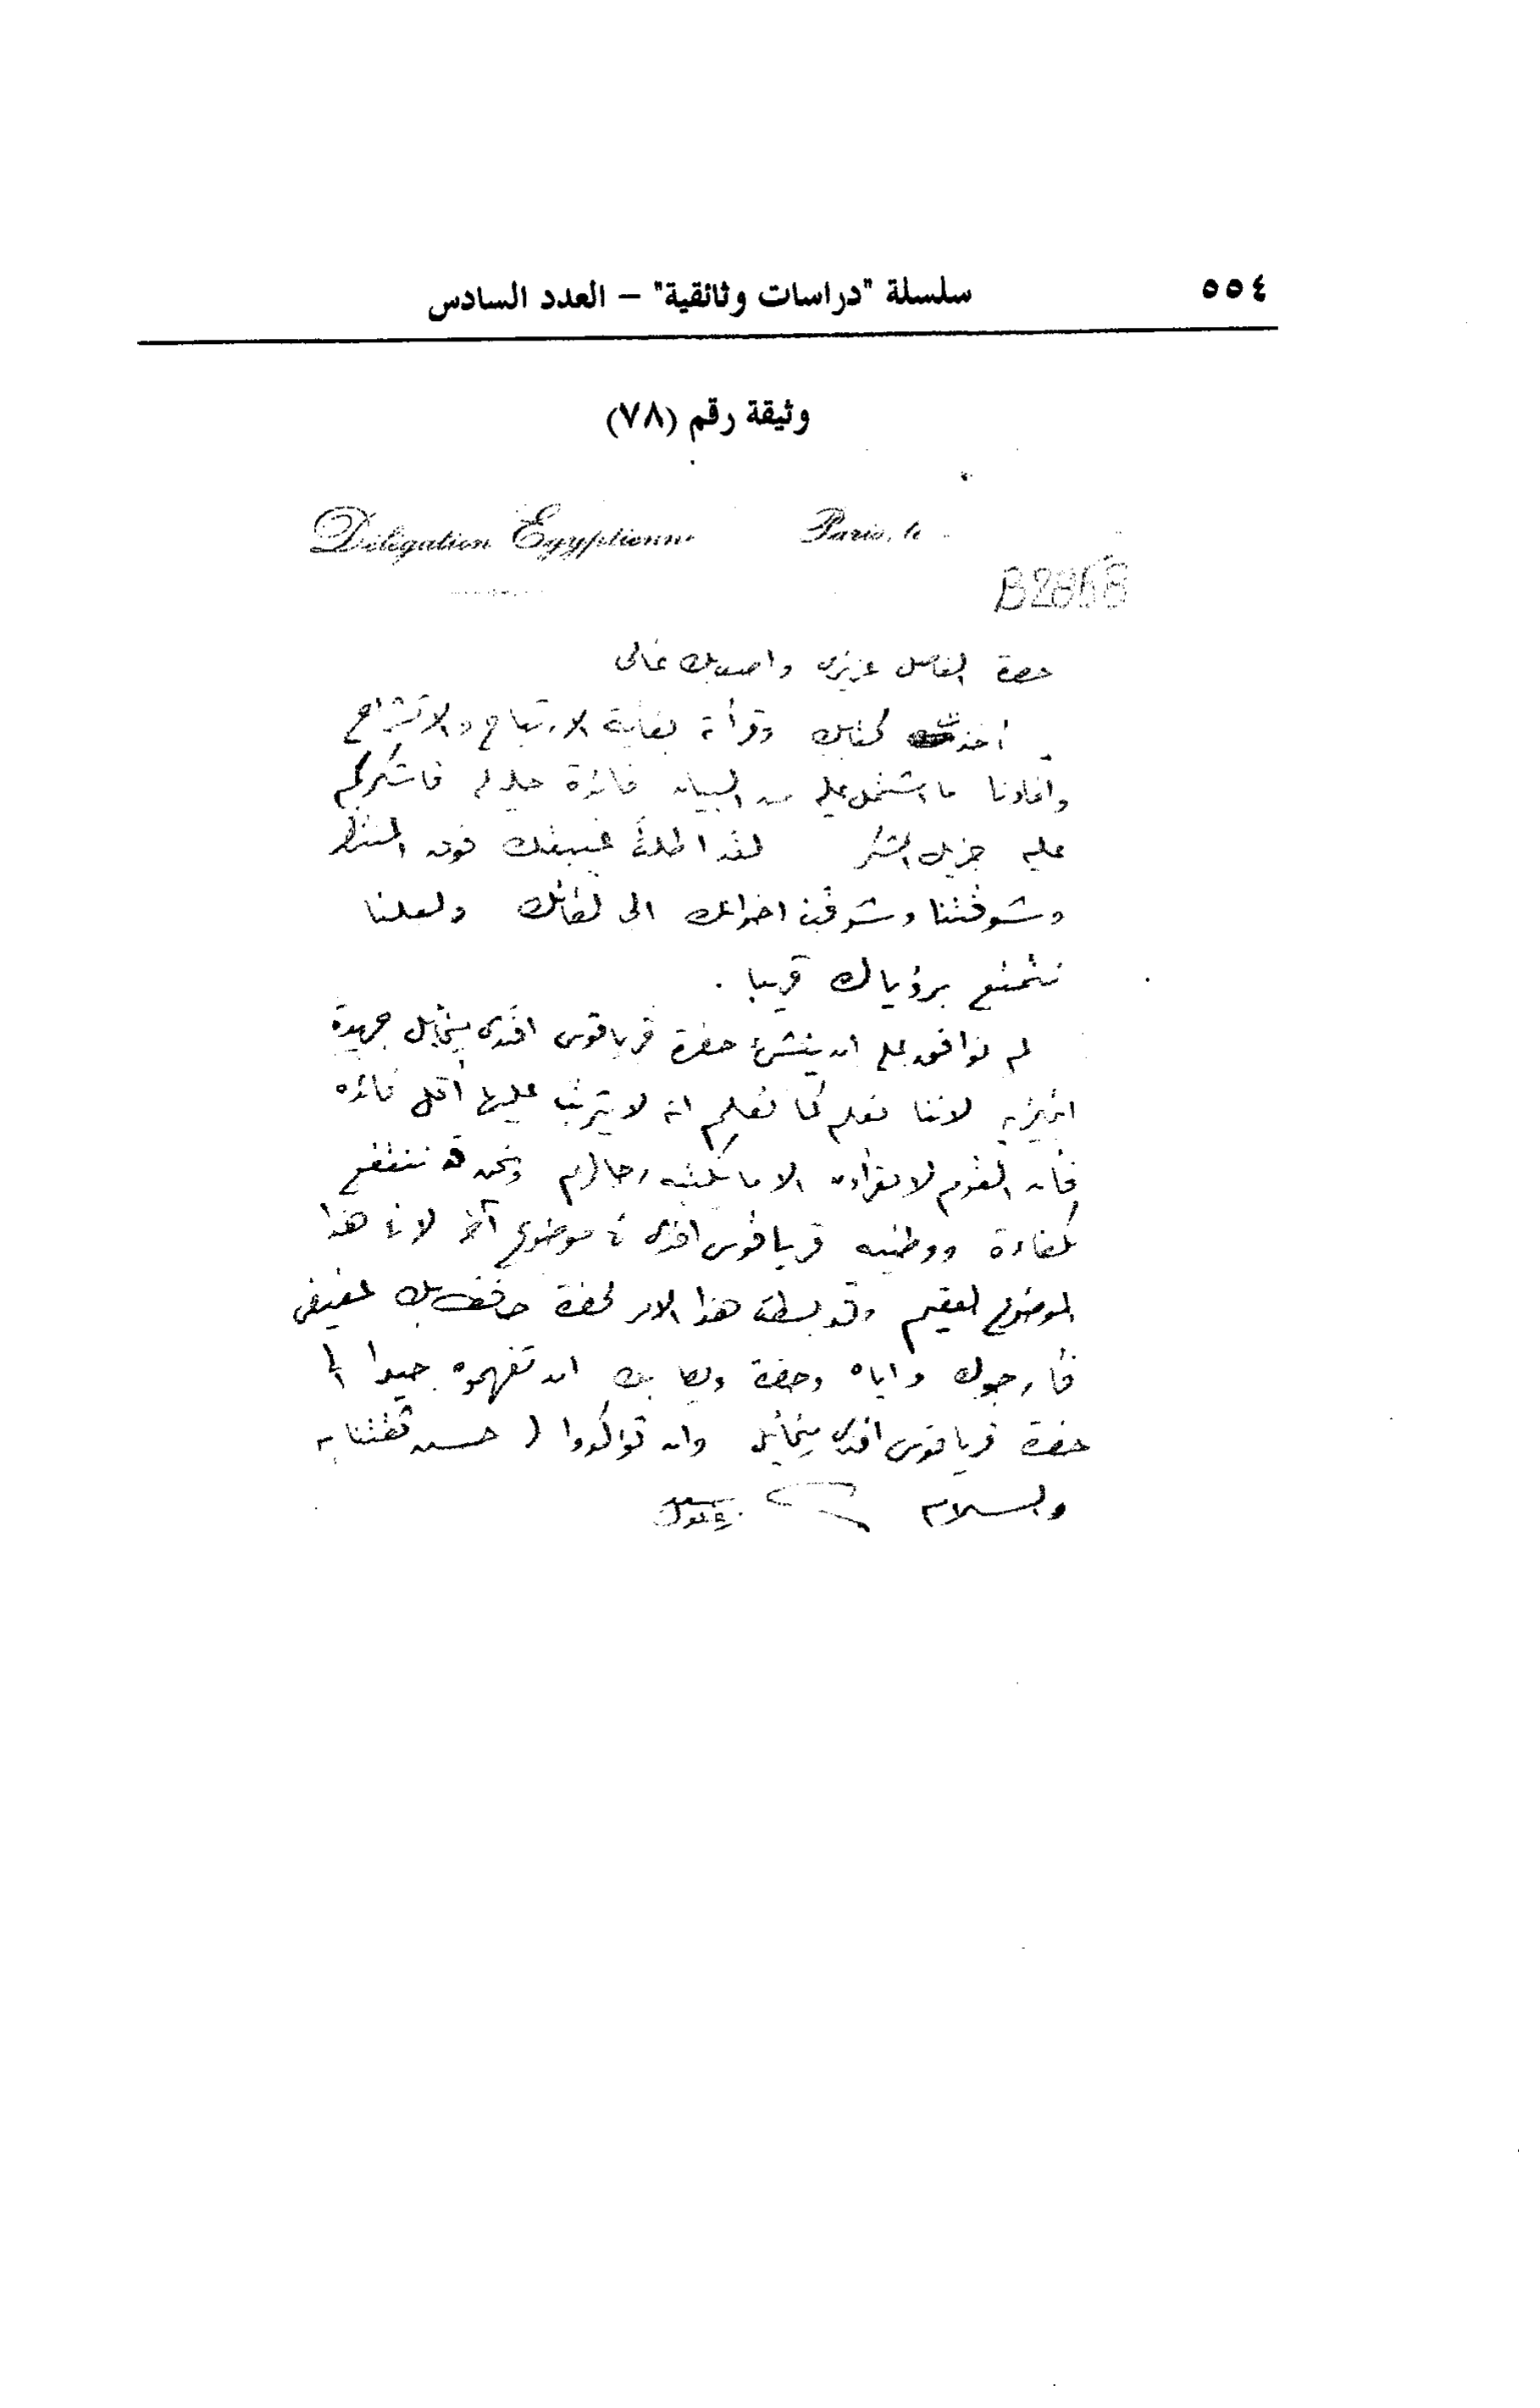 ٥٥٤
سلسلة "دراسات وثائقية" – العدد السادس
وثيقة رقم (٧٨)
Délégation Egyptienne
Paris, le
حضرة الفاضل عزيزى واصف بك غالى
أخذت كتابك وقرأته بغاية الارتياح والانشراح
وأفادنا ما اشتمل عليه من البيان فائدة جليلة فاشكركم
عليه جزيل الشكر لقد اطلت غيبتك فوق المنتظر
وشوقتنا وشوقت اخوانك الى لقائك ولعلنا
نتمتع برؤياك قريبا .
لم نوافق على ان ينشئ حضرة قرياقوس افندى ميخائيل جريدة
انجليزيه لاننا نعلم كما تعلم انه لا يترتب عليها أقل فائده
فان القوم لا يقرأون الا ما يكتبه رجالهم ونحن قد ننتفع
بكفاءة ووطنيه قرياقوس افندى فى موضوع آخر لا فى هذا
الموضوع العقيم وقد بسطت هذا الامر لحضرة حافظ بك عفيفى
فأرجوك واياه وحضرة ويصا بك ان تفهموه جيدا الى
حضرة قرياقوس افندى ميخائيل وان تؤكدوا له حسن ثقتنا به
والسلام سعد زغلول